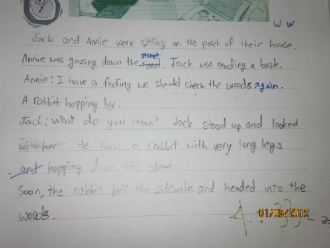 W W
Jack and Annie were sitting on the porch of their house.
street
Annie was gazing down the Jack was reading a book.
Annie: I have a feeling we should check the woods again.
A rabbit hopping by.
Jack: What do you mean? Jack stood up and looked
with her. He saw a rabbit with very long legs
and hopping down their street
Soon, the rabbit left the sidewalk and headed into the
woods.
01/03/2012